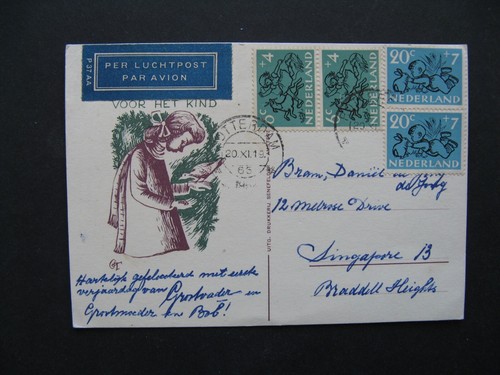 P 37 AA
PER LUCHTPOST
PAR AVION
VOOR HET KIND
ROTTERDAM
20.XI.19
65
6 +4
NEDERLAND
6 +4
NEDERLAND
20c +7
NEDERLAND
20c +7
NEDERLAND
UITG. DRUKKERIJ SENEFELDER
Bram, Daniël en
12 Melrose Drive
Singapore 13
Braddell Heights
Hartelijk gefeliciteerd met eerste
verjaardag van Grootvader en
Grootmoeder en Bob!